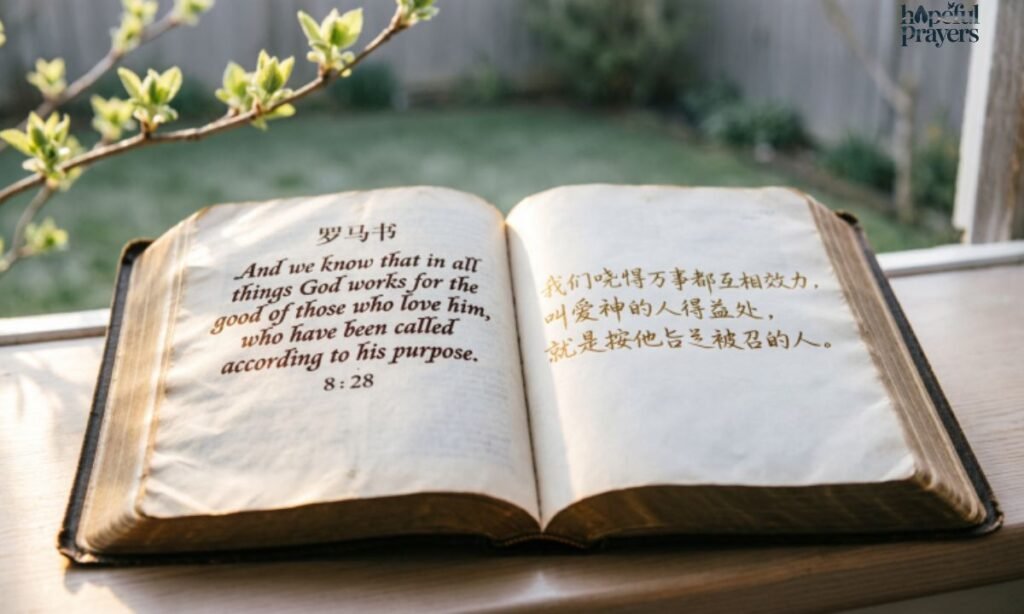 hopeful
Prayers
罗马书
And we know that in all
things God works for the
good of those who love him,
who have been called
according to his purpose.
8:28
我们哓得万事都互相效力,
叫爱神的人得益处,
就是按他旨被召的人。